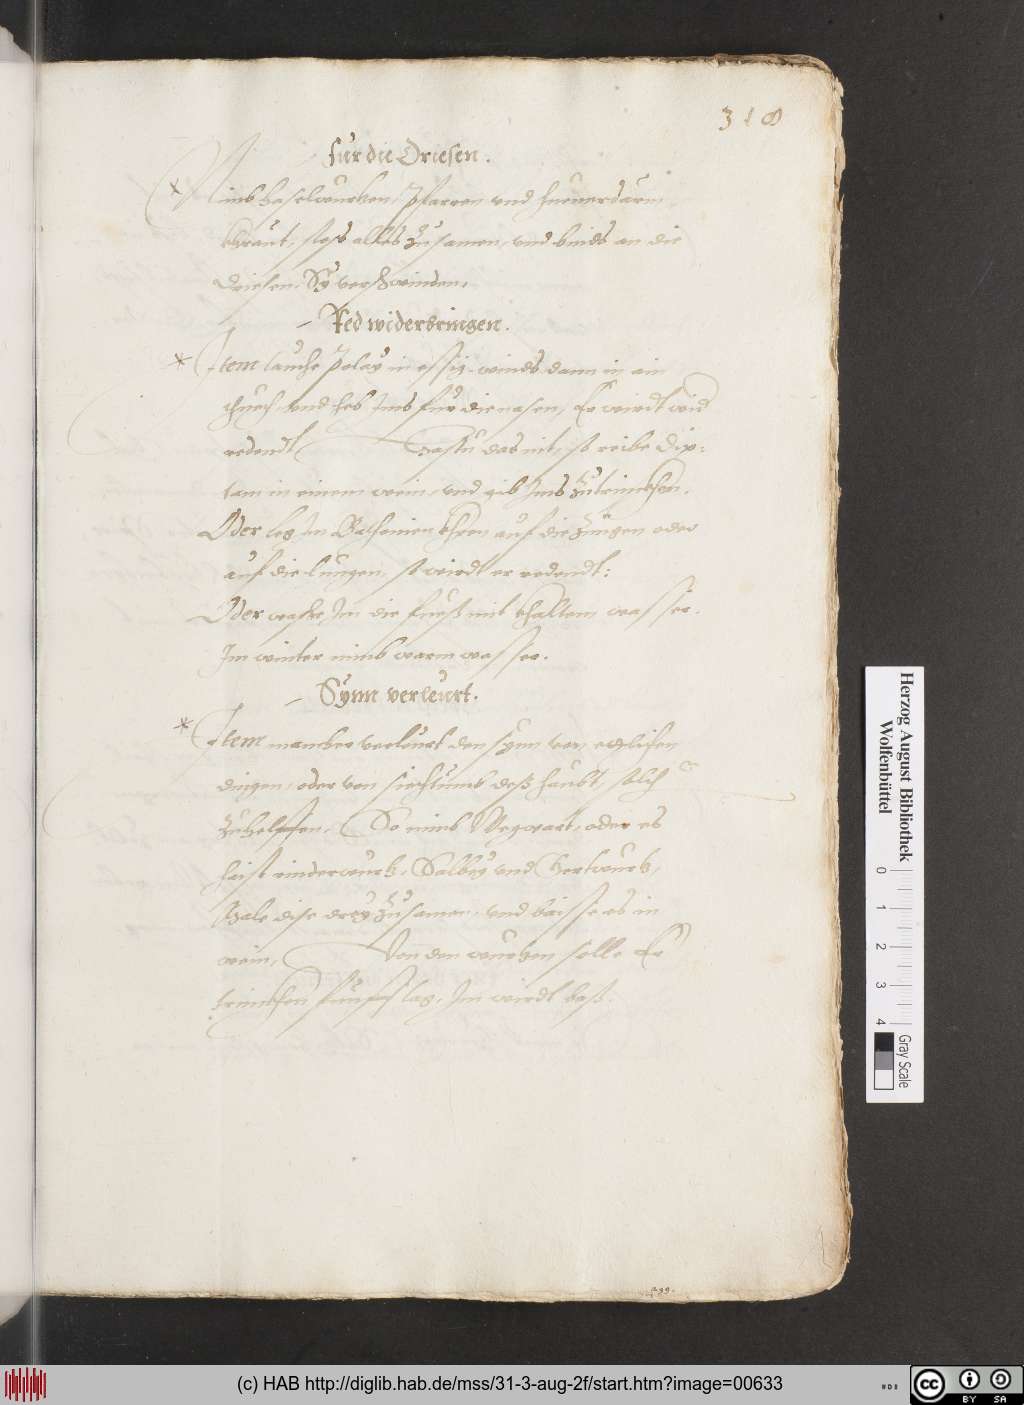 318
Für die Driesen.
Nimb haselwurtzen, Pfarren und huenerdarm
khraut, stoss alles zusamen, und binds an die
Driesen, Sy verschwinden.
Red widerbringen.
Item tauche Polay in essig, winds dann in ain
thuech, und heb Ims für die nasen, Er wirdt wid
redendt Hastu das nit, so reibe Dip=
tam in einem wein, und gib Ims zutrinckhen.
Oder leg Im khren auf die Zungen oder
auf die lungen, so wirdt er redendt:
Oder wasche Im die fuess mit khaltem wasser.
Im winter nimb warm wasser.
Synn verleurt.
Item mancher verleurt den synn von etlichen
dingen, oder von siechtumb deß haubt, solch
zuhelffen, So nimb Wegwart, oder es
haist rinderwurtz, Salbey und
dise drey zusamen, und baisse es in
wein, Von den wurtzen solle Er
trinckhen funff tag, Im wirdt baß.
Herzog August Bibliothek
Wolfenbüttel
0 1 2 3 4
Gray Scale
(c) HAB http://diglib.hab.de/mss/31-3-aug-2f/start.htm?image=00633
cc BY SA